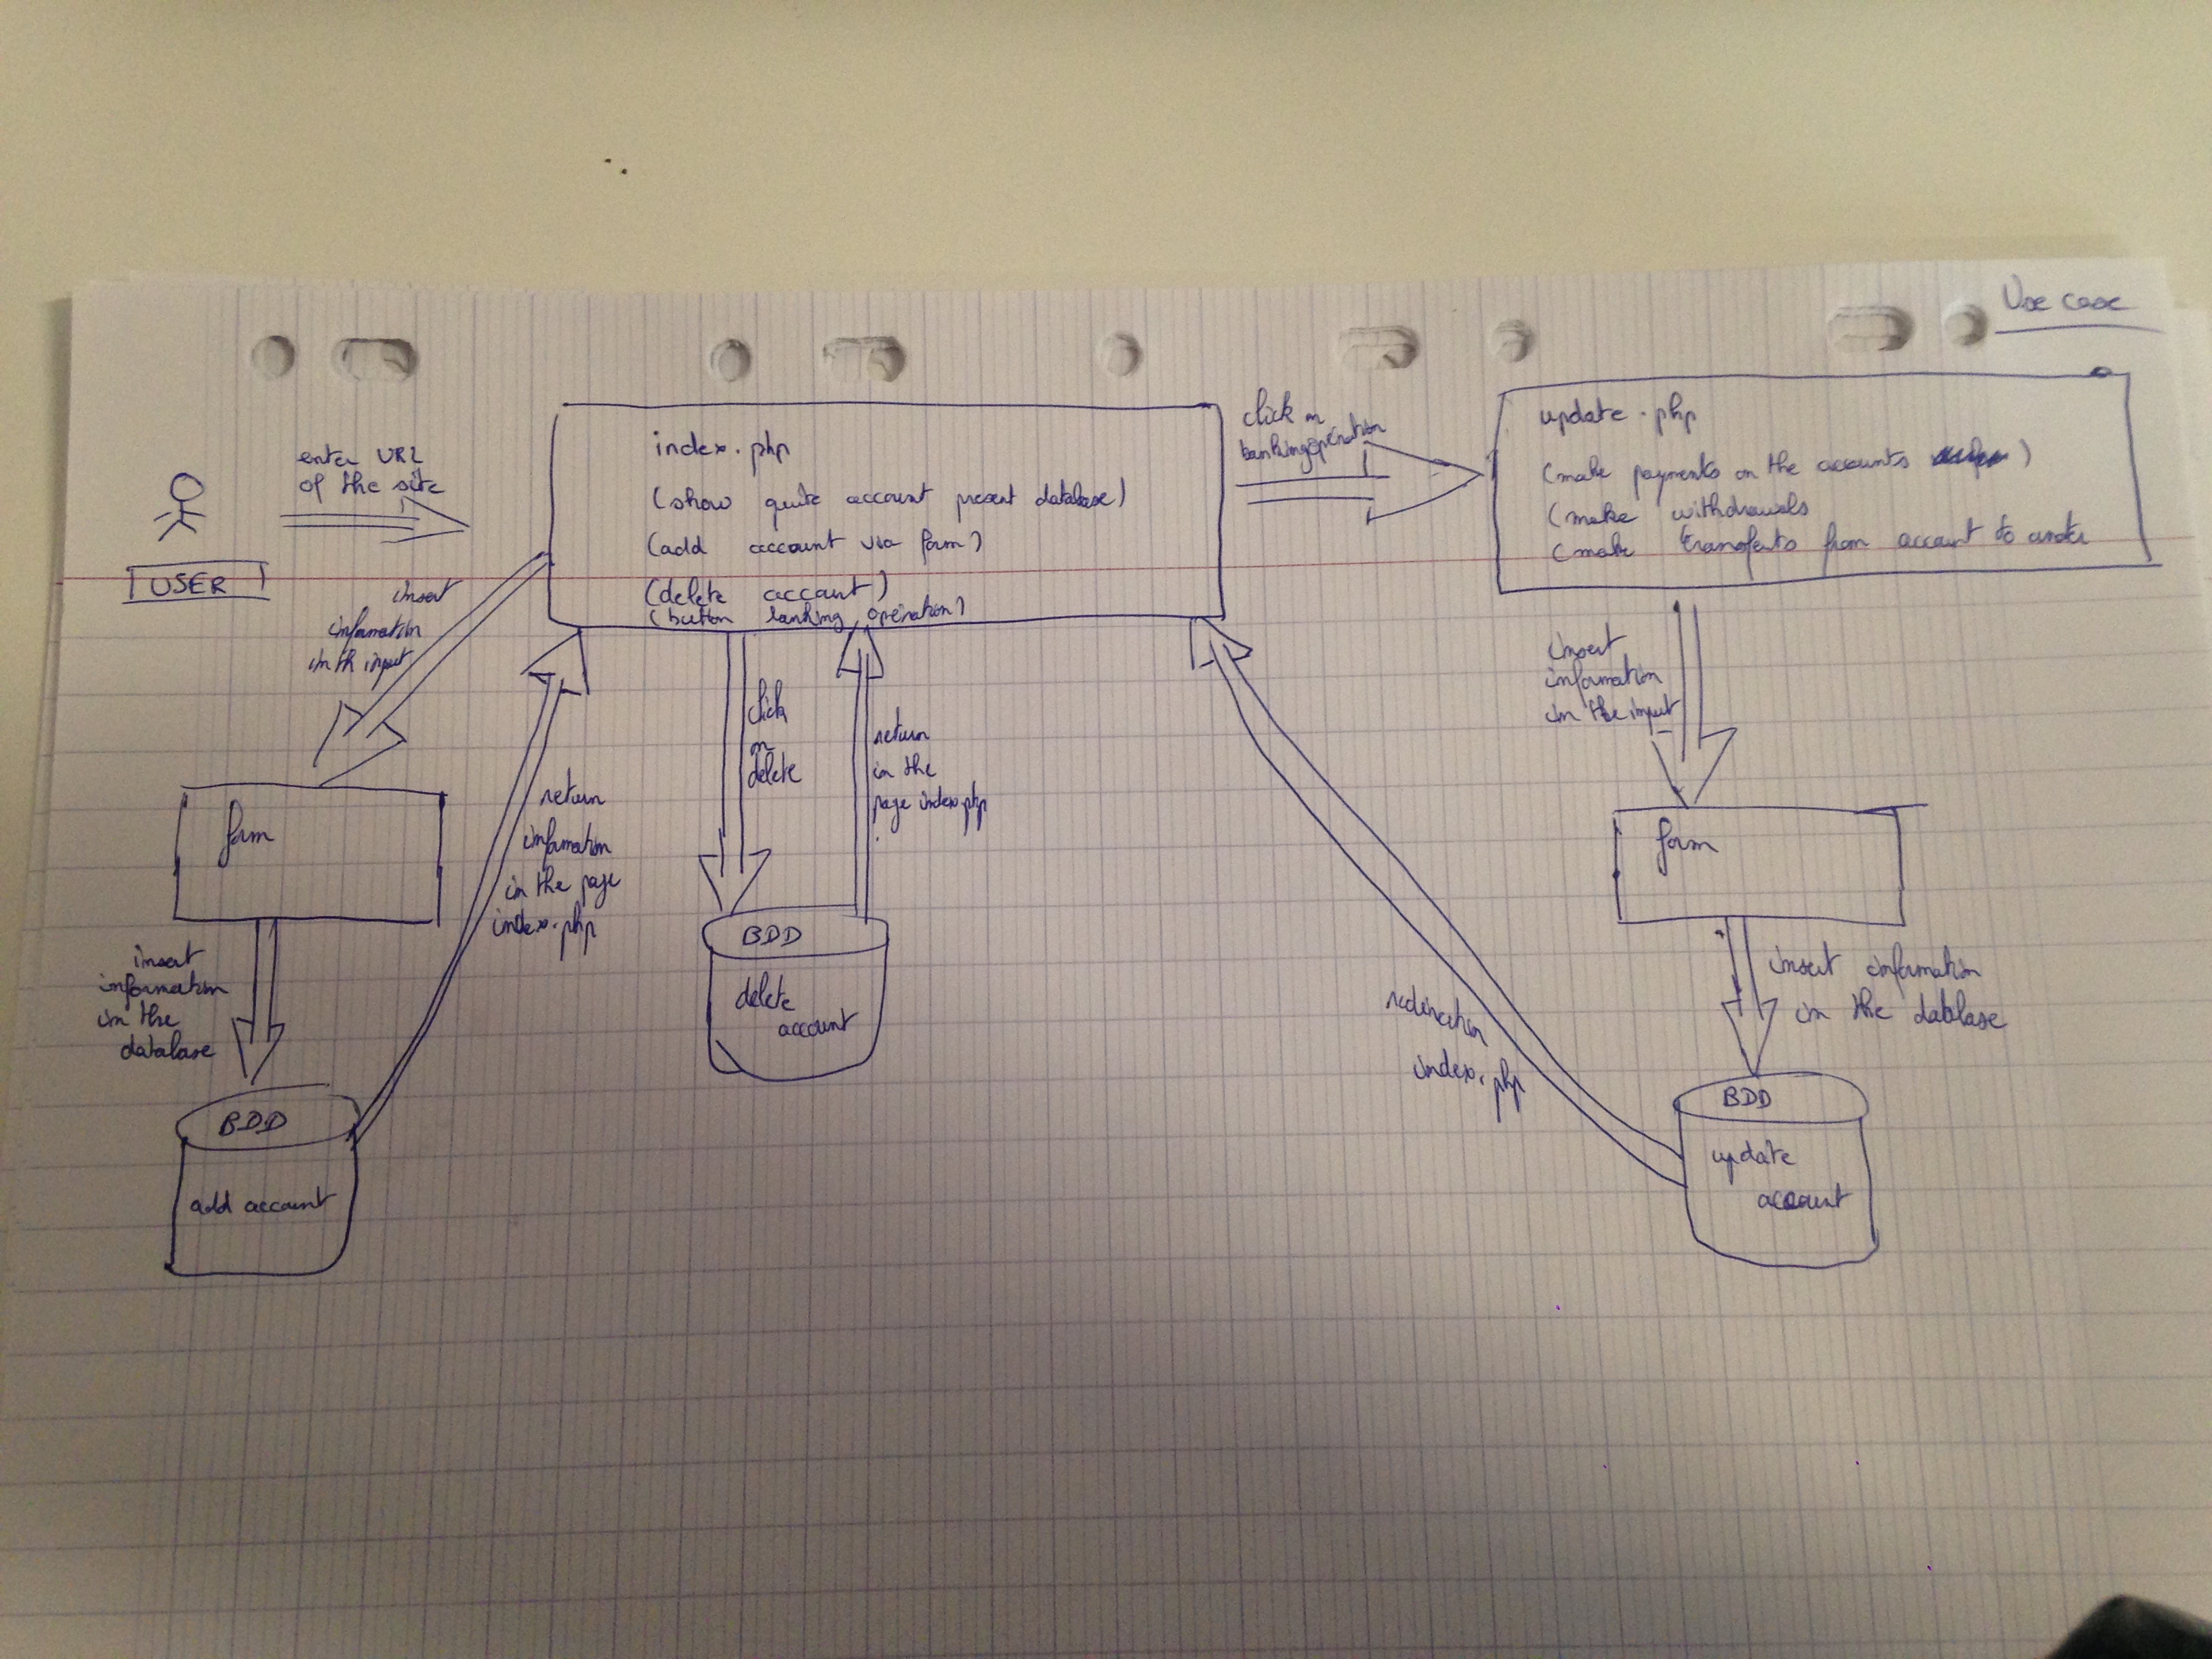 Use case
enter URL
of the site
USER
index.php
(show quite account present database)
(add account via form)
(delete account)
(button banking operation)
click on
banking operation
update.php
(make payments on the accounts )
(make withdrawals
(make transferts from account to
insert
information
in th input
form
insert
information
in the
database
BDD
add account
return
information
in the page
index.php
click
on
delete
return
in the
page index.php
BDD
delete
account
redirection
index.php
insert
information
in the input
form
insert information
in the database
BDD
update
account